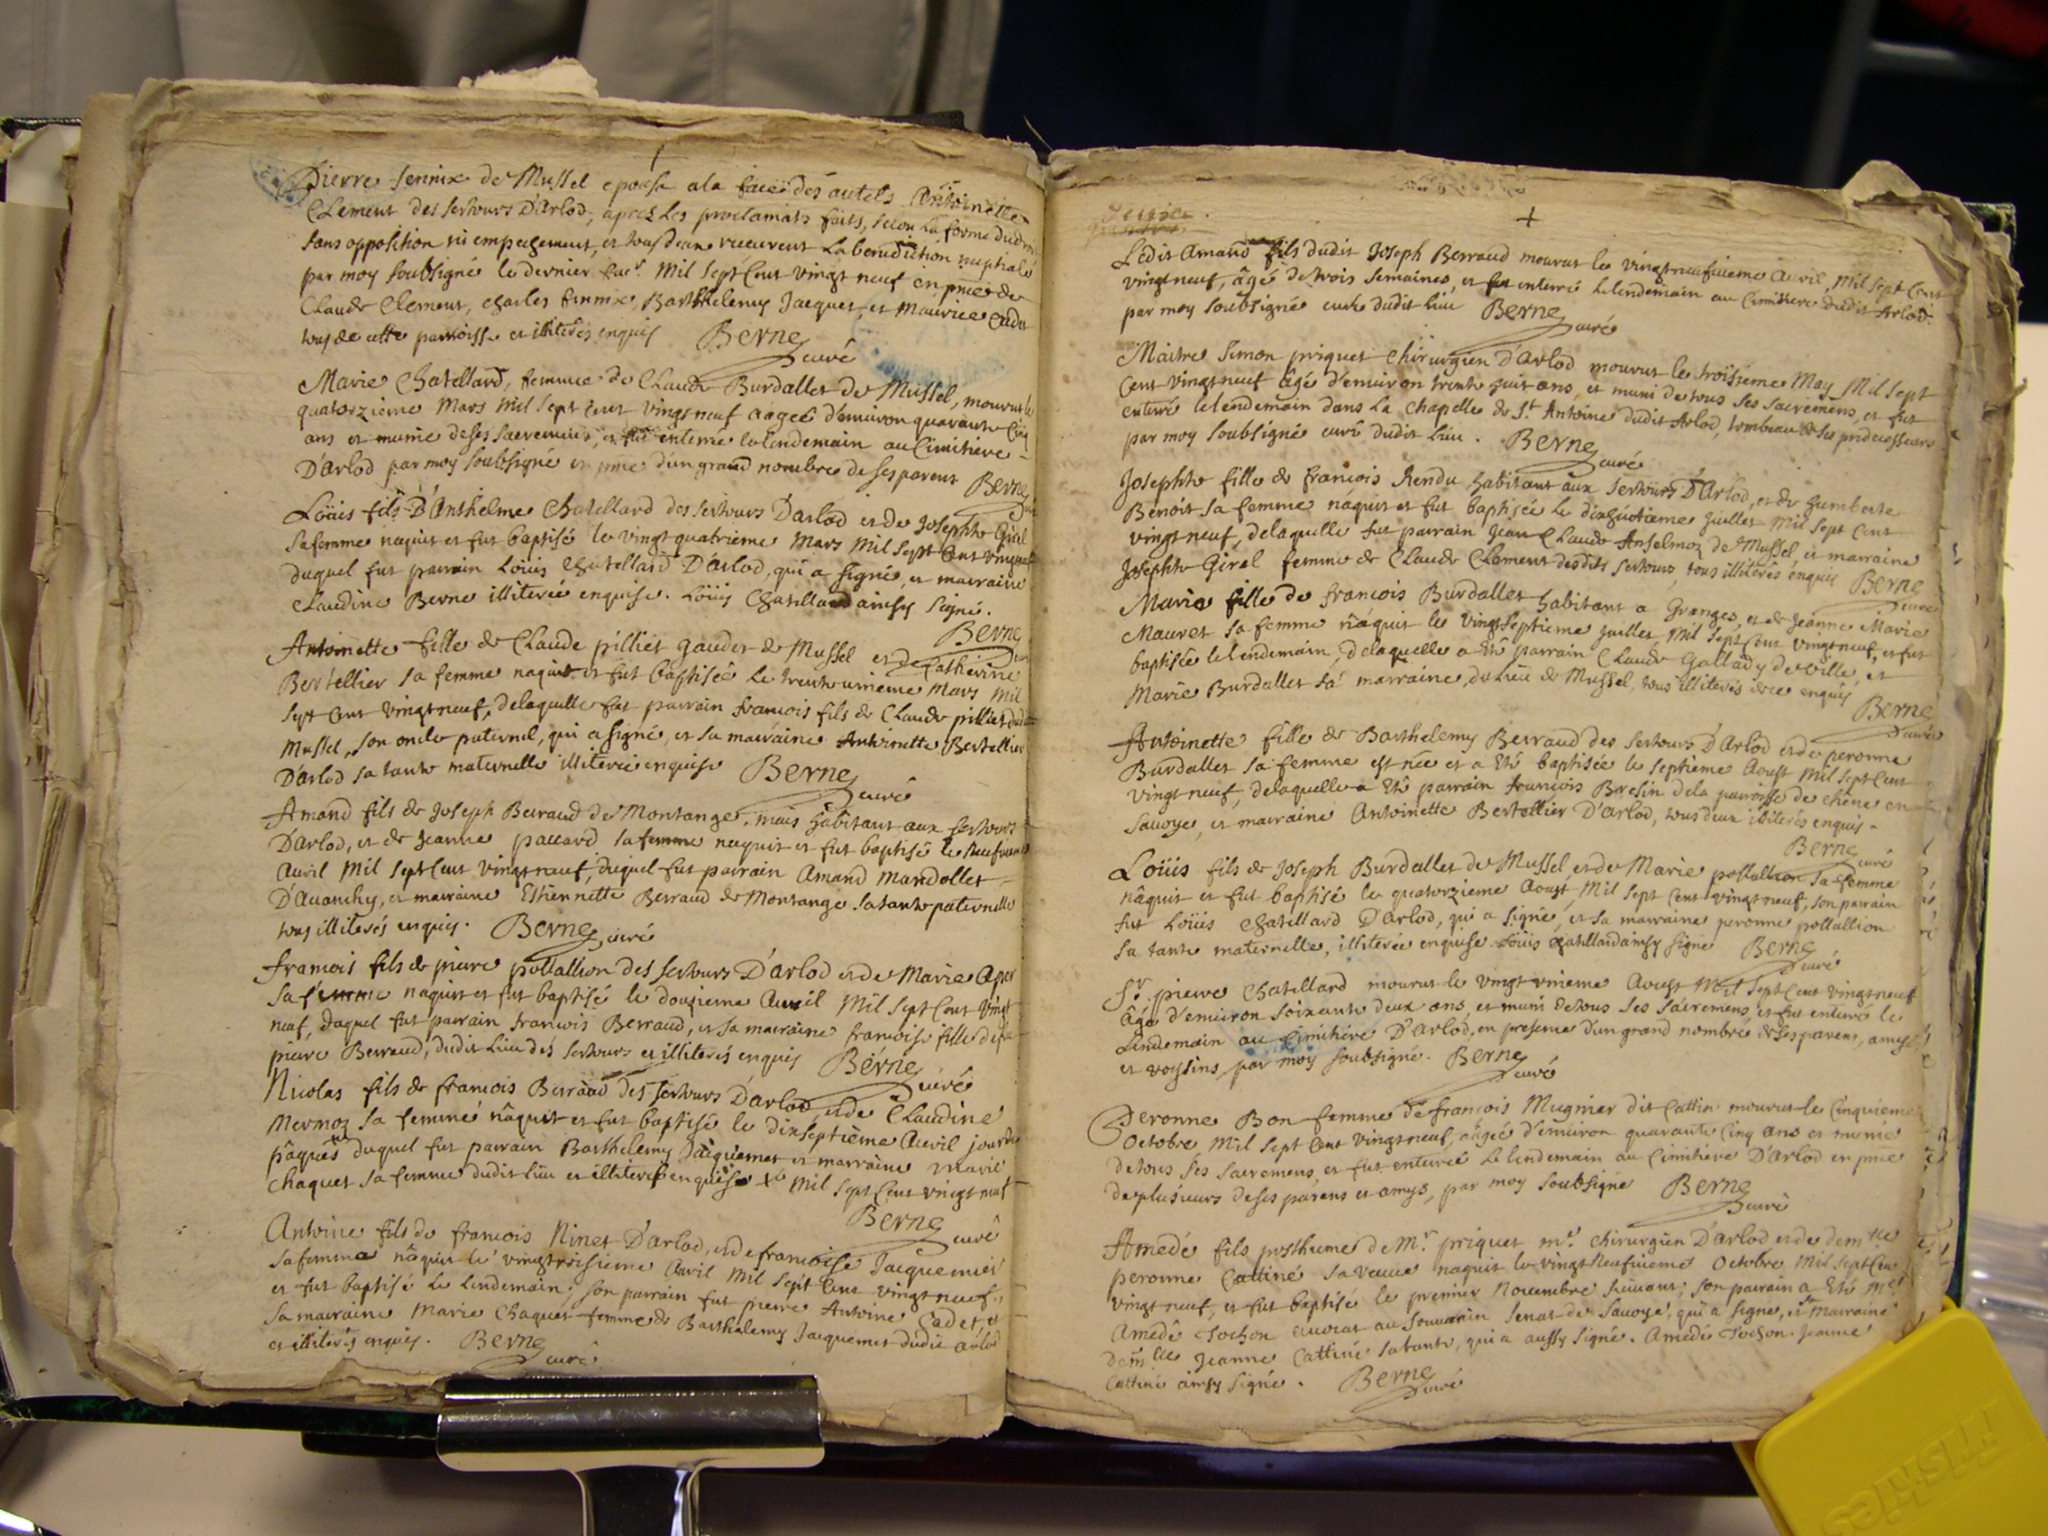 Pierre fennix de Mussel epouse a la face des autels Antoinette
Clement des sertours D'Arlod, apres les proclamats faits, selon la forme du droit
sans opposition ni empechement, et tous deux receurent la benediction nuptiale
par moy soubsigné le dernier Mil sept Cent vingt neuf en pnce de
Claude Clement, charles fennix Barthelemy Jacquet, et Maurice
tous de cette parroisse et illiterés enquis Berne curé
Marie Chatellard, femme de Claude Burdallet de Mussel, mourut le
quatorzieme Mars Mil Sept Cent vingt neuf aageé d'environ quarante Cinq
ans et munie de ses sacremens, et fut enterreé le lendemain au Cimitiere
D'arlod par moy soubsigné en pnce d'un grand nombre de ses parens Berne
Loüis fils D'Anthelme Chatellard des sertours D'arlod et de Josephte Girel
sa femme naquit et fut baptisé le vingt quatrieme Mars Mil Sept Cent vingt neuf
duquel fut parrain Loüis Chatellard D'arlod, qui a signé, et marraine
Claudine Berne illiterée enquise. Loüis Chatellard ainsy signé.
Berne
Antoinette fille de Claude pilliet gauder de Mussel et de Catherine
Bertellier sa femme naquit et fut baptiseé le trente unieme Mars Mil
Sept Cent vingt neuf, de laquelle fut parrain francois fils de Claude pilliet dudit
Mussel, son oncle paternel, qui a signé, et sa marraine Antoinette Bertellier
D'arlod sa tante maternelle illiterée enquise Berne curé
Amand fils de Joseph Berraud de Montange, mais habitant aux sertours
D'arlod, et de Jeanne paccard sa femme naquit et fut baptisé le neufvieme
Avril Mil sept Cent vingt neuf, duquel fut parrain Amand Mandollet
D'Auanchy, et marraine Ethiennette Berraud de Montange sa tante paternelle
tous illiterés enquis. Berne curé
francois fils de pierre pollallion des sertours D'arlod et de Marie
sa femme naquit et fut baptisé le douzieme Avril Mil Sept Cent vingt
neuf, duquel fut parrain francois Berraud, et sa marraine francoise fille de
pierre Berraud, dudit lieu des sertours et illiterés enquis Berne curé
Nicolas fils de francois Berraud des sertours D'arlod, et de Claudine
Mermoz sa femme naquit et fut baptisé le dixseptième Avril jour de
pâques duquel fut parrain Barthelemy Jacquemet et marraine marie
Chaquet sa femme dudit lieu et illiterés enquis Mil sept Cent vingt neuf
Berne curé
Antoine fils de francois Ninet D'arlod, et de francoise Jacquemier
sa femme nâquit le vingttroisieme Avril Mil sept Cent vingt neuf,
et fut baptisé le lendemain, son parrain fut pierre Antoine Cadet, et
sa marraine Marie Chaquet femme de Barthelemy Jacquemet dudit arlod
et illiterés enquis. Berne curé
Ledit Amand fils dudit Joseph Berraud mourut le vingtneufuieme Avril, Mil Sept Cent
vingt neuf, âgé de trois semaines, et fut enterré le lendemain au Cimitiere dudit Arlod.
par moy soubsigné curé dudit lieu Berne curé
Maitre Simon priquet chirurgien d'Arlod mourut le troisieme May Mil sept
Cent vingt neuf âgé d'environ trente huit ans, et muni de tous ses sacremens, et fut
enterré le lendemain dans la chapelle de St Antoine dudit Arlod, tombeau de ses predecesseurs
par moy soubsigné curé dudit lieu. Berne curé
Josephte fille de francois Rendu habitant aux sertours D'Arlod, et de humberte
Benoit sa femme nâquit et fut baptisée le dixhuitieme Juillet Mil sept Cent
vingt neuf, de laquelle fut parrain Jean Claude Anselmoz de Mussel, et marraine
Josephte Girel femme de Claude Clement desdits sertours, tous illiterés enquis Berne curé
Marie fille de francois Burdallet habitant a Granges, et de Jeanne Marie
Mauret sa femme nâquit le vingtseptieme Juillet Mil sept Cent vingt neuf, et fut
baptisée le lendemain, de laquelle a eté parrain Claude Gallady de ville, et
Marie Burdallet sa marraine, du lieu de Mussel, tous illiterés enquis
Berne curé
Antoinette fille de Barthelemy Berraud des sertours D'Arlod et de peronne
Burdallet sa femme est née et a eté baptisée le septieme Aoust Mil sept Cent
vingt neuf, de laquelle a eté parrain francois Bresin de la parroisse de chêne en
Savoye, et marraine Antoinette Bertellier D'arlod, tous deux illiterés enquis.
Berne curé
Loüis fils de Joseph Burdallet de Mussel et de Marie pollallion sa femme
nâquit et fut baptisé le quatorzieme Aoust Mil sept Cent vingt neuf, son parrain
fut Loüis Chatellard D'arlod, qui a signé, et sa marraine peronne pollallion
sa tante maternelle, illiterée enquise Loüis Chatellard ainsy signé Berne curé
Sr. pierre Chatellard mourut le vingt unieme Aoust Mil sept Cent vingt neuf
âgé d'environ soixante deux ans, et muni de tous ses sacremens, et fut enterré le
lendemain au Cimitiére D'arlod, en presence d'un grand nombre de ses parens, amys
et voysins, par moy soubsigné. Berne curé
Peronne Bon femme de francois Mugnier dit Cattin mourut le Cinquieme
Octobre Mil sept Cent vingt neuf, âgeé d'environ quarante Cinq ans et munie
de tous ses sacremens, et fut enterreé le lendemain au Cimitiere D'Arlod en pnce
de plusieurs de ses parens et amys, par moy soubsigné Berne curé
Amedé fils posthume de Mr. priquet mre. chirurgien D'arlod et de demlle
peronne Cattiné sa veuve naquit le vingt neufuieme Octobre Mil sept Cent
vingt neuf, et fut baptisé le premier Novembre suivant, son parrain a eté Mr
Amedé Jochon avocat au Souverain Senat de Savoye, qui a signé, et sa marraine
demlle Jeanne Cattiné sa tante, qui a aussy signé. Amedé Jochon. Jeanne
Cattiné ainsy signé. Berne curé